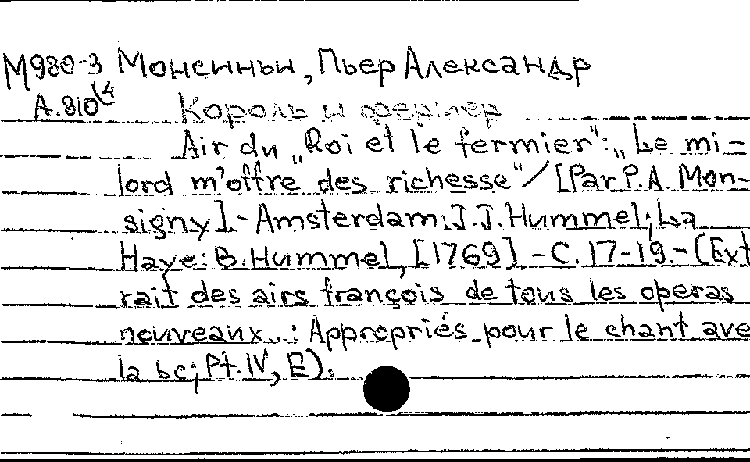 М980-3 Монсиньи, Пьер Александр
А.810 (4 Король и фермер
Air du „Roi et le fermier": „Le mi-
lord m'offre des richesse" / [Par P.A. Mon-
signy]. - Amsterdam: J.J. Hummel; La
Haye: B. Hummel, [1769] - C. 17-19. - (Ext
rait des airs françois de tous les operas
nouveaux...: Appropriés pour le chant ave
la bc; Pt. IV, E).